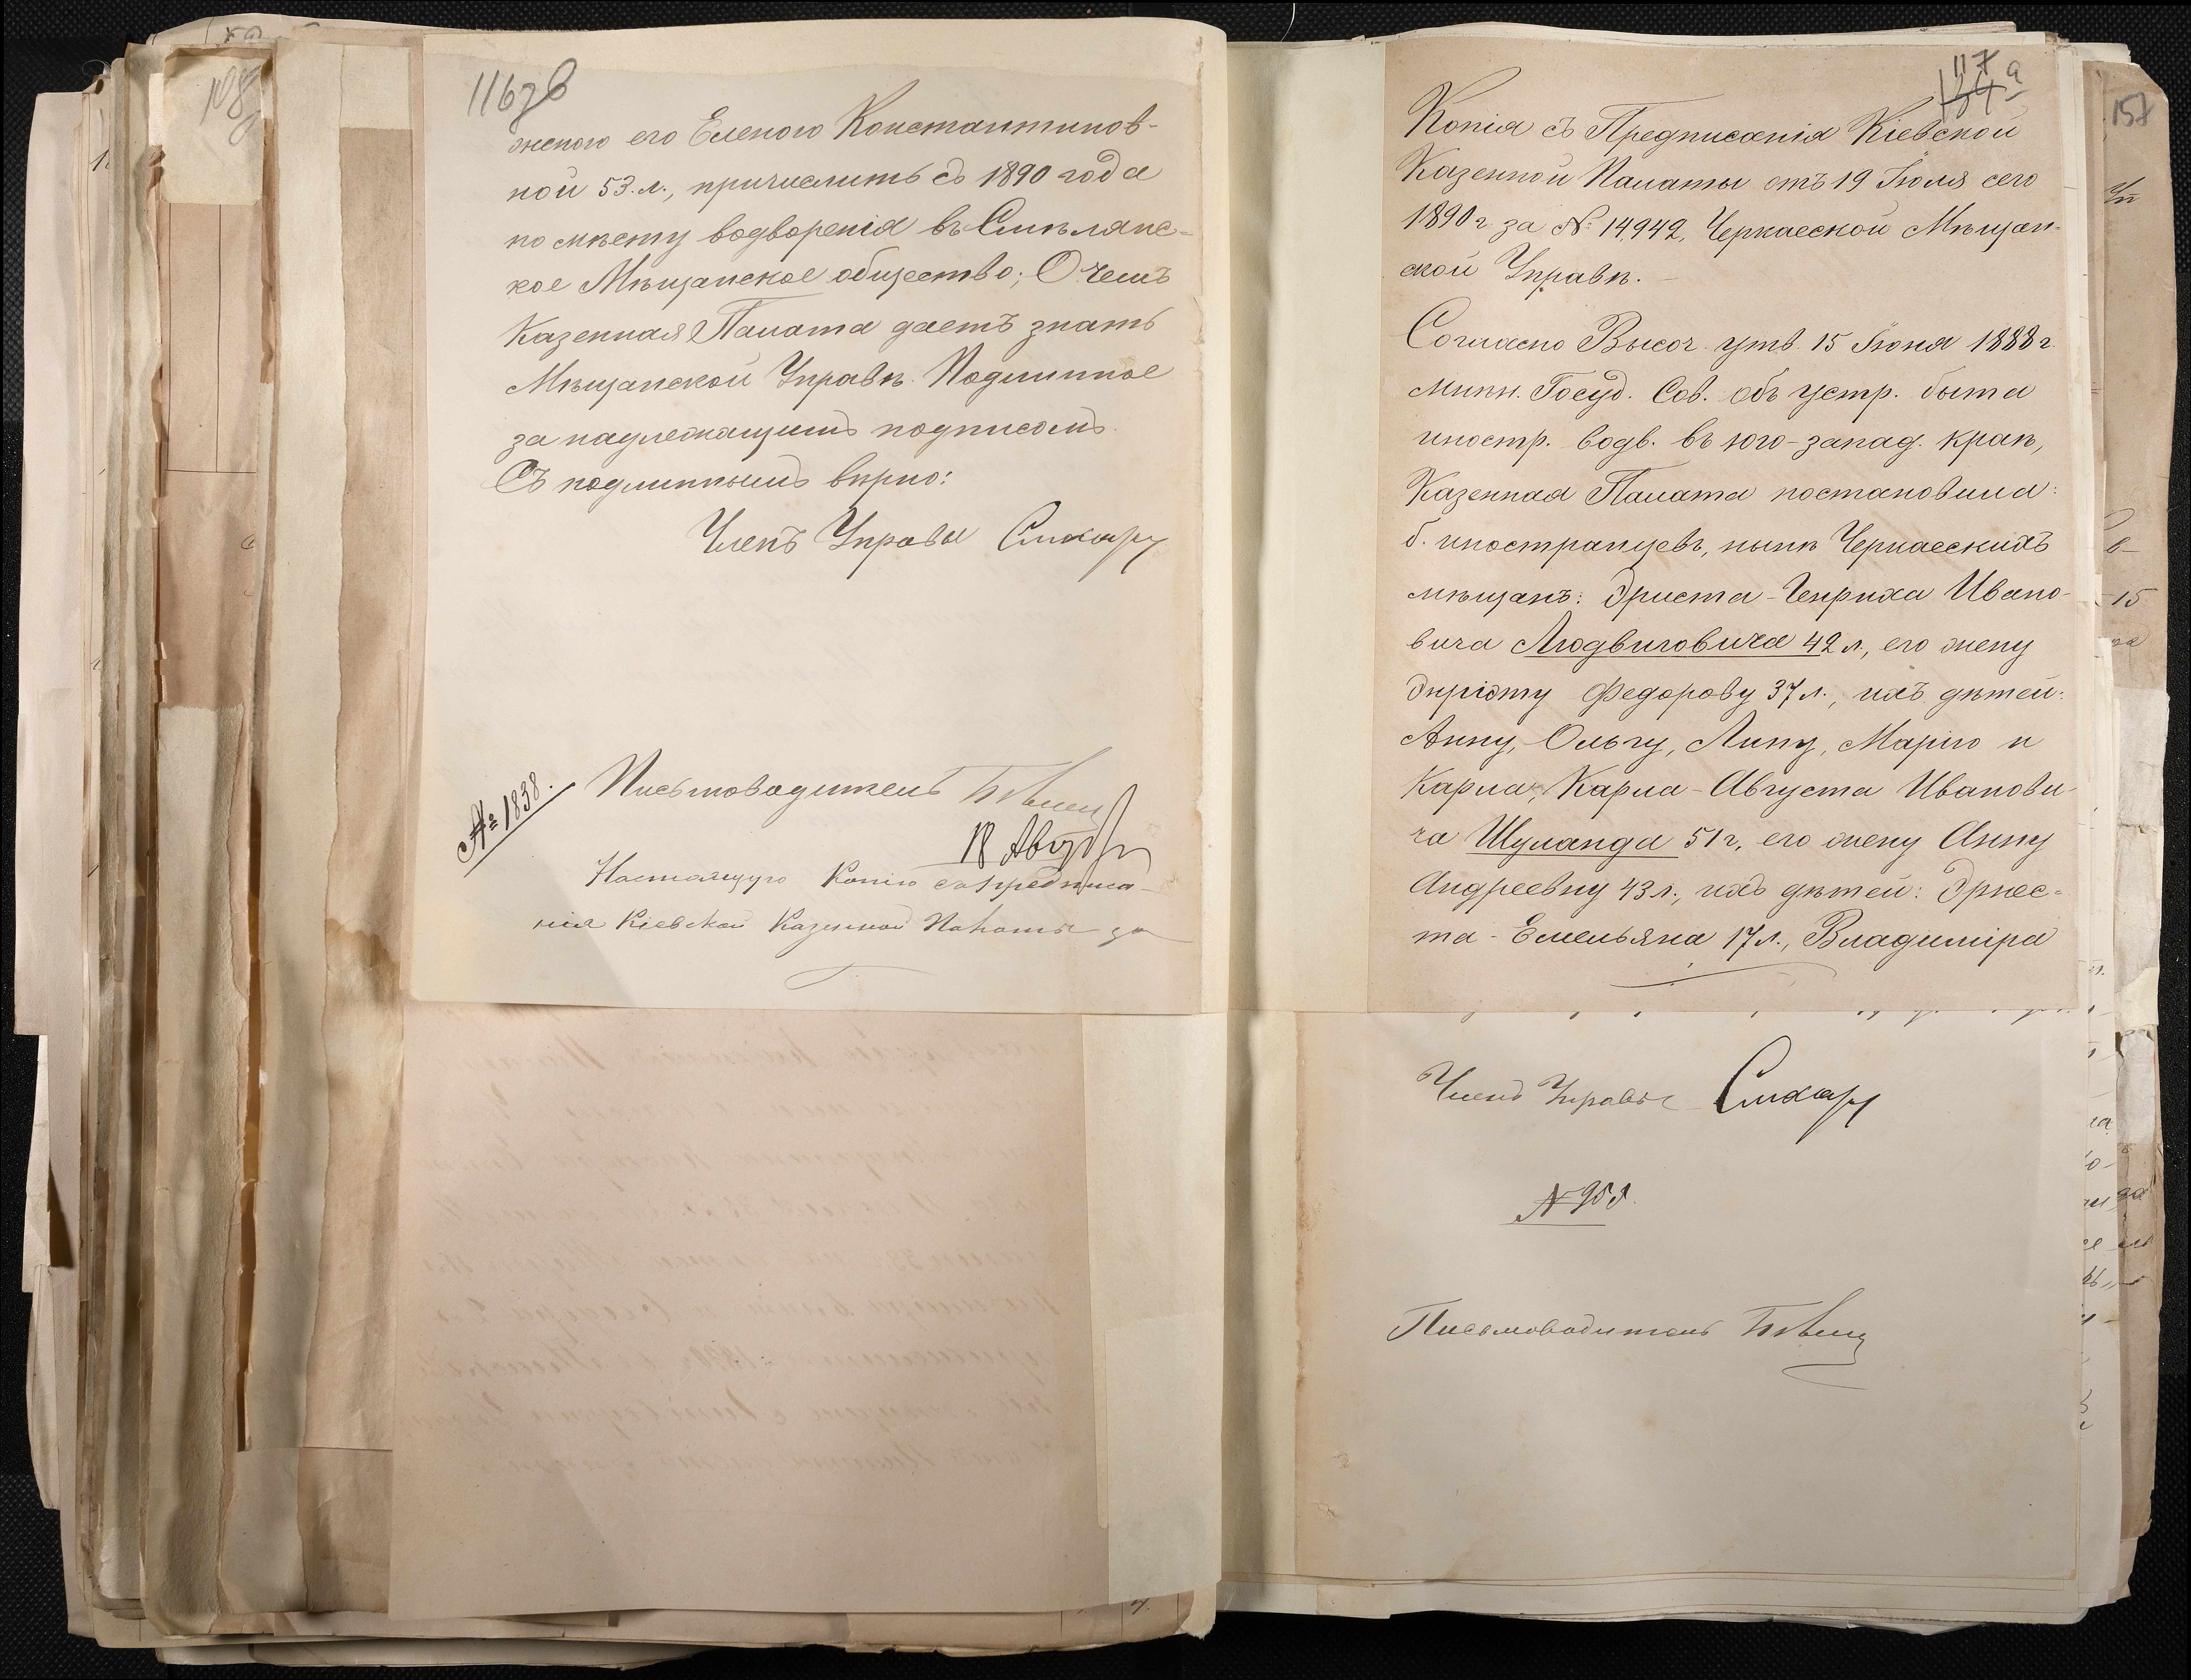 116 об
женою его Еленою Константинов-
ной 53. л., причислить съ 1890 года
по мѣсту водворенія въ Смѣлянс-
кое Мѣщанское общество; О чемъ
Казенная Палата даетъ знать
Мѣщанской Управѣ. Подлинное
за надлежащимъ подписомъ.
Съ подлиннымъ вѣрно:
Членъ Управы
№ 1838.
Письмоводитель
18 Авг
Настоящую Копію съ предписа-
нія Кіевской Казенной Палаты за
117 а
Копія съ Предписанія Кіевской
Казенной Палаты отъ 19 Іюля сего
1890 г за № 14,942, Черкасской Мѣщан-
ской Управѣ. —
Согласно Высоч. утв. 15 Іюня 1888 г.
мнѣн. Госуд. Сов. объ устр. быта
иностр. водв. въ юго-запад. краѣ,
Казенная Палата постановила:
б. иностранцевъ, нынѣ Черкасскихъ
мѣщанъ: Эрнста-Генриха Ивано-
вича Людвиговича 42 л, его жену
Федорову 37 л., ихъ дѣтей:
Анну, Ольгу, Лину, Марію и
Карла, Карла-Августа Иванови-
ча Шуланда 51 г, его жену Анну
Андреевну 43 л., ихъ дѣтей: Эрнес-
та-Емельяна 17 л., Владиміра
Членъ Управы
№ 958.
Письмоводитель
157